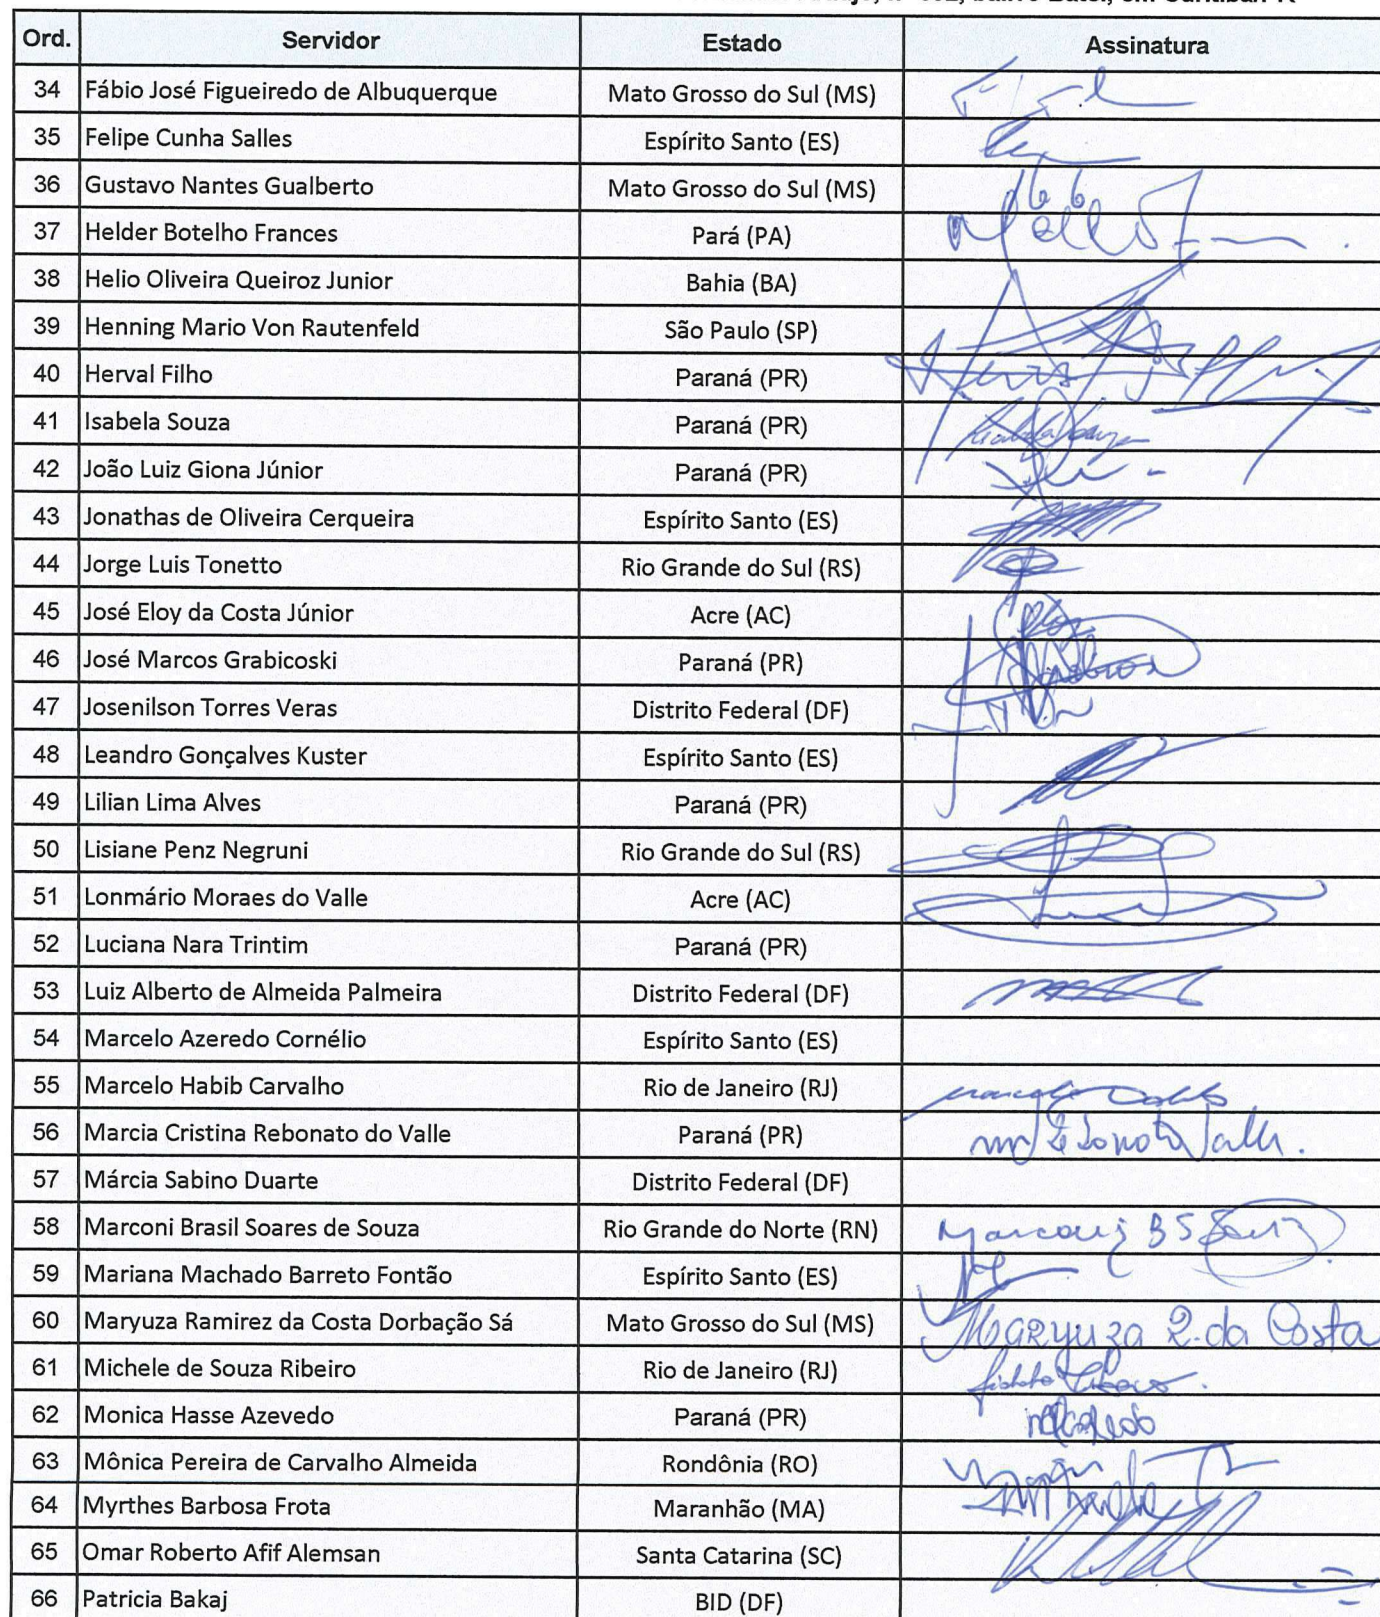 Ord. Servidor Estado Assinatura
34 Fábio José Figueiredo de Albuquerque Mato Grosso do Sul (MS)
35 Felipe Cunha Salles Espírito Santo (ES)
36 Gustavo Nantes Gualberto Mato Grosso do Sul (MS)
37 Helder Botelho Frances Pará (PA)
38 Helio Oliveira Queiroz Junior Bahia (BA)
39 Henning Mario Von Rautenfeld São Paulo (SP)
40 Herval Filho Paraná (PR)
41 Isabela Souza Paraná (PR)
42 João Luiz Giona Júnior Paraná (PR)
43 Jonathas de Oliveira Cerqueira Espírito Santo (ES)
44 Jorge Luis Tonetto Rio Grande do Sul (RS)
45 José Eloy da Costa Júnior Acre (AC)
46 José Marcos Grabicoski Paraná (PR)
47 Josenilson Torres Veras Distrito Federal (DF)
48 Leandro Gonçalves Kuster Espírito Santo (ES)
49 Lilian Lima Alves Paraná (PR)
50 Lisiane Penz Negruni Rio Grande do Sul (RS)
51 Lonmário Moraes do Valle Acre (AC)
52 Luciana Nara Trintim Paraná (PR)
53 Luiz Alberto de Almeida Palmeira Distrito Federal (DF)
54 Marcelo Azeredo Cornélio Espírito Santo (ES)
55 Marcelo Habib Carvalho Rio de Janeiro (RJ)
56 Marcia Cristina Rebonato do Valle Paraná (PR)
57 Márcia Sabino Duarte Distrito Federal (DF)
58 Marconi Brasil Soares de Souza Rio Grande do Norte (RN) Marconi B S Souza
59 Mariana Machado Barreto Fontão Espírito Santo (ES)
60 Maryuza Ramirez da Costa Dorbação Sá Mato Grosso do Sul (MS) Maryuza R. da Costa
61 Michele de Souza Ribeiro Rio de Janeiro (RJ)
62 Monica Hasse Azevedo Paraná (PR)
63 Mônica Pereira de Carvalho Almeida Rondônia (RO)
64 Myrthes Barbosa Frota Maranhão (MA)
65 Omar Roberto Afif Alemsan Santa Catarina (SC)
66 Patricia Bakaj BID (DF)